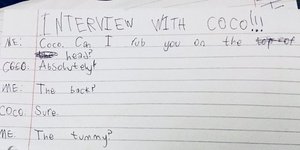 INTERVIEW WITH COCO!!!
ME: Coco. Can I rub you on the top of
head?
COCO: Absolutely!
ME: The back?
COCO: Sure.
ME: The tummy?